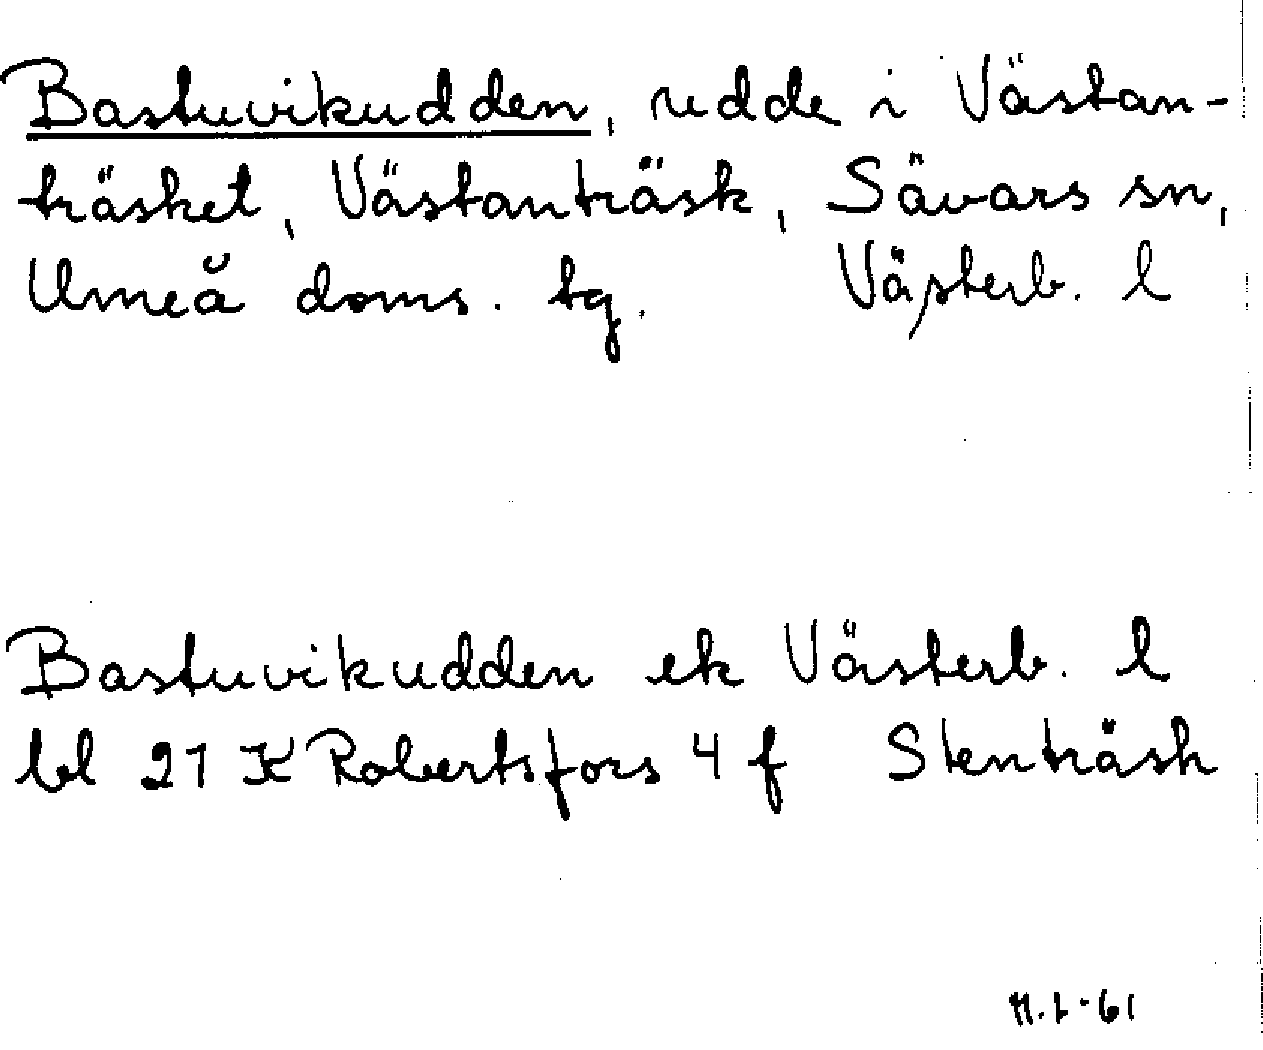 Bastuvikudden, udde i Västan-
träsket, Västanträsk, Sävars sn,
Umeå doms. tg. Västerb. l
Bastuvikudden ek Västerb. l
bl 21 K Robertsfors 4 f Stenträsk